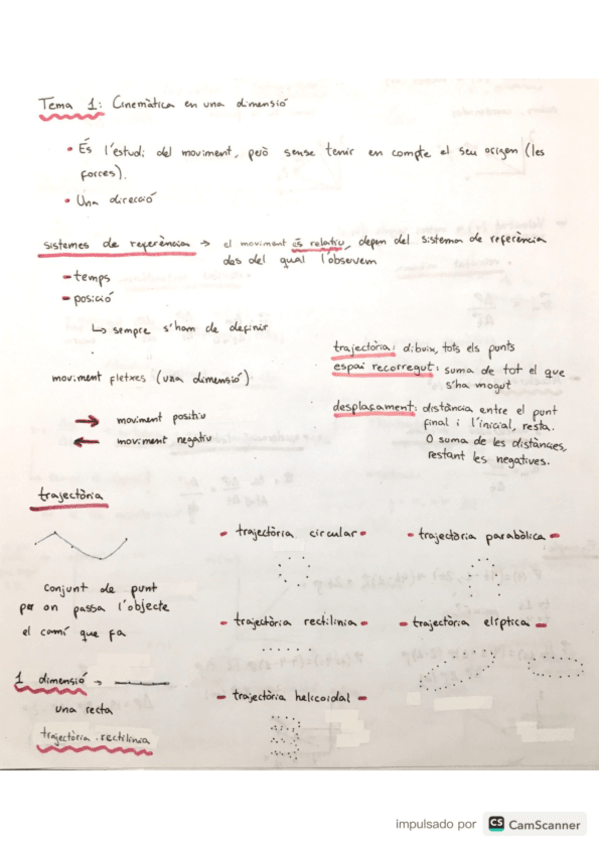 Tema 1: Cinemàtica en una dimensió
• És l'estudi del moviment, però sense tenir en compte el seu origen (les
forces).
• Una direcció
sistemes de referència → el moviment és relatiu, depen del sistema de referència
des del qual l'observem
- temps
- posició
↳ sempre s'han de definir
moviment fletxes (una dimensió)
→ moviment positiu
← moviment negatiu
trajectòria: dibuix, tots els punts
espai recorregut: suma de tot el que
s'ha mogut
desplaçament: distància entre el punt
final i l'inicial, resta.
O suma de les distàncies,
restant les negatives.
trajectòria
conjunt de punt
per on passa l'objecte
el camí que fa
1 dimensió →
una recta
trajectòria rectilínia
- trajectòria circular -
- trajectòria parabòlica -
- trajectòria rectilínia -
- trajectòria elíptica -
- trajectòria helicoidal -
impulsado por CS CamScanner